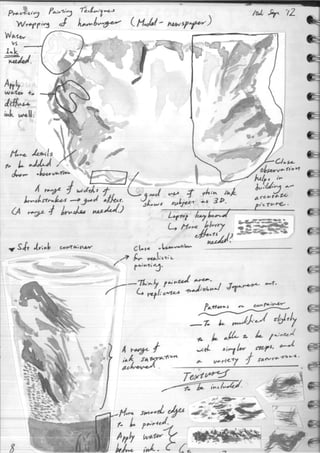 Practicing Painting Techniques
Wrapping of hamburger (Model - newspaper)
Sep. 12
Water
vs
Ink
needed.
Apply
water to
diffuse
ink well.
More details
to be added
from observation
A range of widths of
brushstrokes → good effect.
(A range of brushes needed)
good use of thin ink
shows subject as 3D.
Close
observation
helps in
building an
accurate
picture.
Laptop keyboard
↳ More blurry
effects
needed!
Soft drink container
Close observation
for realistic
painting.
Thinly painted area.
↳ replicates traditional Japanese art.
Patterns on container
→ To be modified slightly
to be able to be painted
with simpler steps and
a variety of
A range of
ink saturation
achieved.
Textures
to be included.
More smooth edges
to be painted.
Apply water
before ink.
8